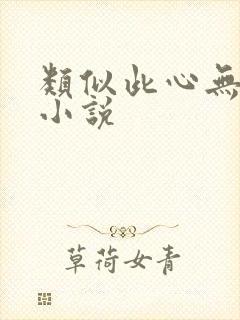 類似此心無
小說
草荷女青